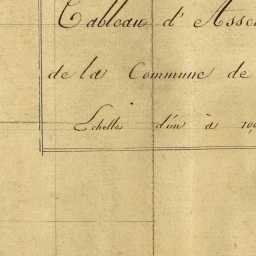 Tableau d'Asse
de la Commune de
Echelle d'un à 10